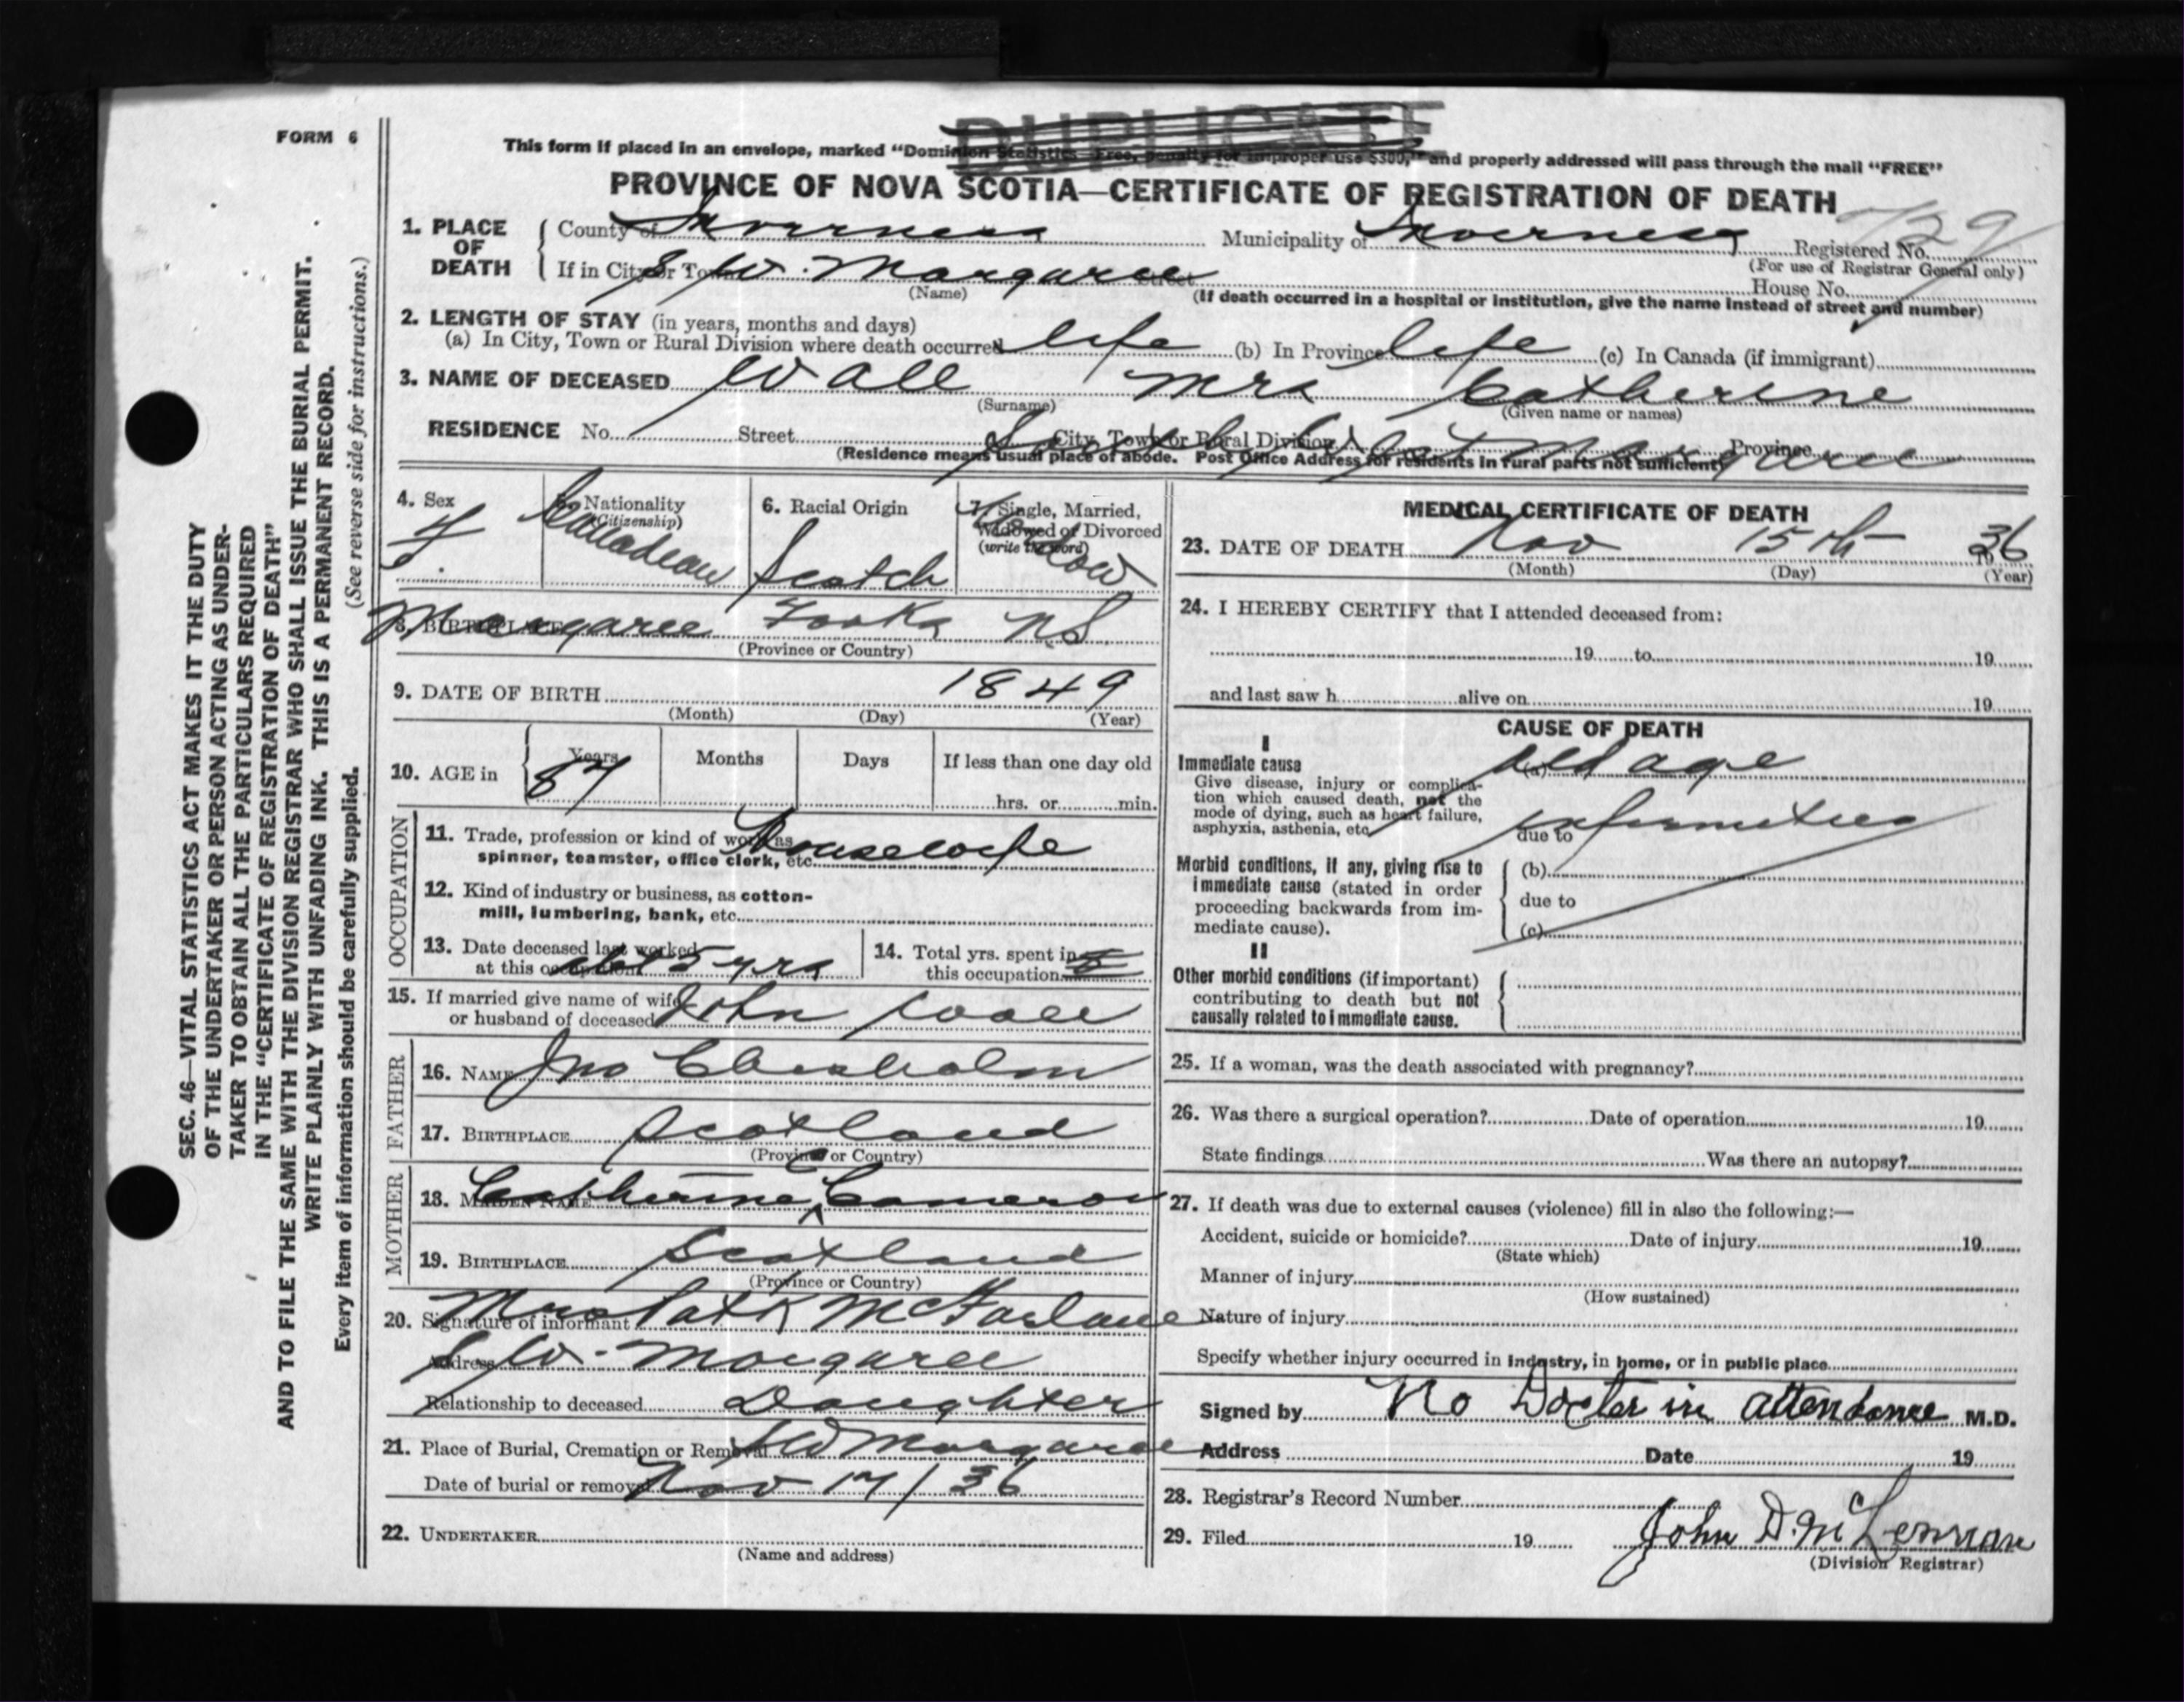 FORM 6
DUPLICATE
This form if placed in an envelope, marked "Dominion Statistics—Free, penalty for improper use $300," and properly addressed will pass through the mail "FREE"
PROVINCE OF NOVA SCOTIA—CERTIFICATE OF REGISTRATION OF DEATH
1. PLACE OF DEATH County of Inverness Municipality of Inverness Registered No. 729
(For use of Registrar General only)
If in City or Town S. W. Margaree Street House No.
(Name) (If death occurred in a hospital or institution, give the name instead of street and number)
2. LENGTH OF STAY (in years, months and days)
(a) In City, Town or Rural Division where death occurred life (b) In Province life (c) In Canada (if immigrant)
3. NAME OF DECEASED Wall Mrs Catherine
(Surname) (Given name or names)
RESIDENCE No. Street City, Town or Rural Division South West Margaree Province
(Residence means usual place of abode. Post Office Address for residents in rural parts not sufficient)
4. Sex f.
5. Nationality (Citizenship) Canadean
6. Racial Origin Scotch
7. Single, Married, Widowed or Divorced (write the word) Widow
8. BIRTHPLACE Margaree Forks NS.
(Province or Country)
9. DATE OF BIRTH 1849
(Month) (Day) (Year)
10. AGE in Years 87 Months Days If less than one day old
hrs. or min.
OCCUPATION
11. Trade, profession or kind of work as
spinner, teamster, office clerk, etc. Housewife
12. Kind of industry or business, as cotton-
mill, lumbering, bank, etc.
13. Date deceased last worked
at this occupation abt 5 yrs
14. Total yrs. spent in
this occupation
15. If married give name of wife
or husband of deceased John Wall
FATHER
16. NAME Jno Chisholm
17. BIRTHPLACE Scotland
(Province or Country)
MOTHER
18. MAIDEN NAME Catherine Cameron
19. BIRTHPLACE Scotland
(Province or Country)
20. Signature of informant Mrs Patk McFarlane
Address S. W. Margaree
Relationship to deceased Daughter
21. Place of Burial, Cremation or Removal S W Margaree
Date of burial or removal Nov 17/36
22. UNDERTAKER
(Name and address)
MEDICAL CERTIFICATE OF DEATH
23. DATE OF DEATH Nov 15th 1936
(Month) (Day) (Year)
24. I HEREBY CERTIFY that I attended deceased from:
19 to 19
and last saw h alive on 19
CAUSE OF DEATH
I
Immediate cause (a) old age
Give disease, injury or complica-
tion which caused death, not the
mode of dying, such as heart failure,
asphyxia, asthenia, etc.
due to infirmities
Morbid conditions, if any, giving rise to
immediate cause (stated in order
proceeding backwards from im-
mediate cause).
(b)
due to
(c)
II
Other morbid conditions (if important)
contributing to death but not
causally related to immediate cause.
25. If a woman, was the death associated with pregnancy?
26. Was there a surgical operation? Date of operation 19
State findings Was there an autopsy?
27. If death was due to external causes (violence) fill in also the following:—
Accident, suicide or homicide? Date of injury 19
(State which)
Manner of injury
(How sustained)
Nature of injury
Specify whether injury occurred in industry, in home, or in public place
Signed by No Docter in attendance M.D.
Address Date 19
28. Registrar's Record Number
29. Filed 19 John D. McLennan
(Division Registrar)
SEC. 46—VITAL STATISTICS ACT MAKES IT THE DUTY
OF THE UNDERTAKER OR PERSON ACTING AS UNDER-
TAKER TO OBTAIN ALL THE PARTICULARS REQUIRED
IN THE "CERTIFICATE OF REGISTRATION OF DEATH"
AND TO FILE THE SAME WITH THE DIVISION REGISTRAR WHO SHALL ISSUE THE BURIAL PERMIT.
WRITE PLAINLY WITH UNFADING INK. THIS IS A PERMANENT RECORD.
Every item of information should be carefully supplied. (See reverse side for instructions.)